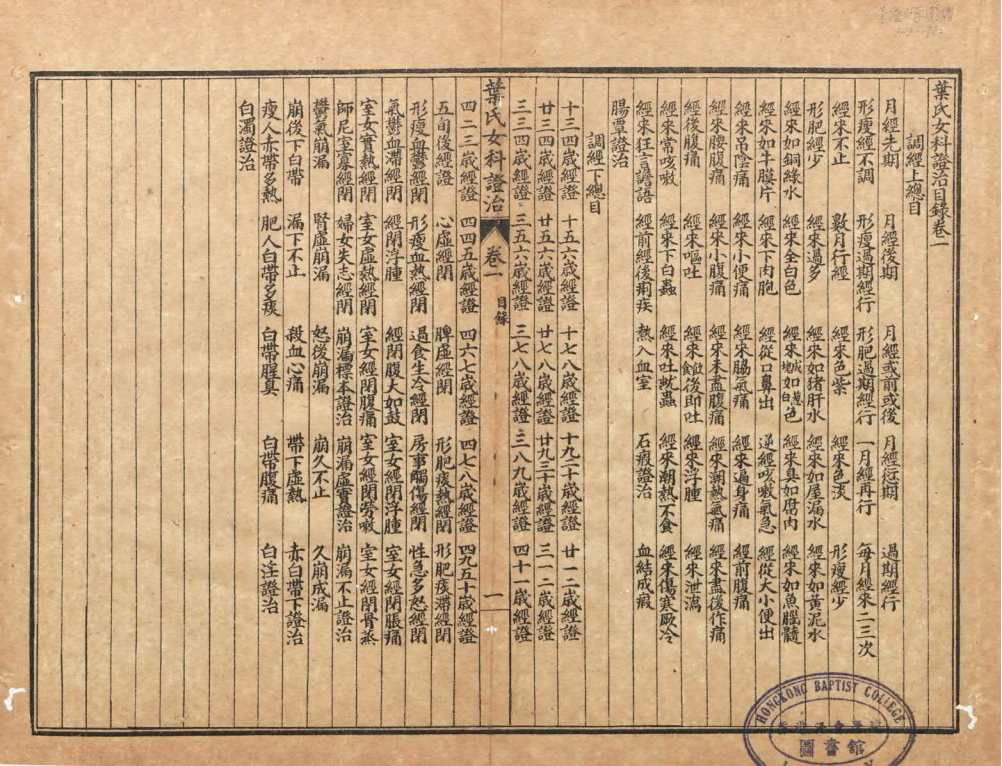 葉氏女科證治目錄卷二
調經上總目
月經先期 月經後期 月經或前或後 月經衍期 過期經行
形瘦經不調 形瘦過期經行 形肥過期經行 一月經再行 每月經來二三次
經來不止 數月行經 經來色紫 經來色淡 形瘦經少
形肥經少 經來過多 經來如猪肝水 經來如屋漏水 經來如黃泥水
經來如銅綠水 經來全白色 經來 色 經來臭如腐肉 經來如魚腦髓
經來如牛膜片 經來下肉胞 經從口鼻出 逆經咳嗽氣急 經從大小便出
經來吊陰痛 經來小便痛 經來脇氣痛 經來遍身痛 經前腹痛
經來腰腹痛 經來小腹痛 經來未盡腹痛 經來潮熱氣痛 經來盡後作痛
經後腹痛 經來嘔吐 經來飲後即吐 經來浮腫 經來泄瀉
經來常咳嗽 經來下白蟲 經來吐蚘蟲 經來潮熱不食 經來傷寒厥冷
經來狂言譫語 經前經後痢疾 熱入血室 石瘕證治 血結成瘕
腸覃證治
調經下總目
十三四歲經證 十五六歲經證 十七八歲經證 十九二十歲經證 廿一二歲經證
廿三四歲經證 廿五六歲經證 廿七八歲經證 廿九三十歲經證 三一二歲經證
三三四歲經證 三五六歲經證 三七八歲經證 三八九歲經證 四十一歲經證
葉氏女科證治 卷二 目錄 一
四二三歲經證 四四五歲經證 四六七歲經證 四七八歲經證 四九五十歲經證
五旬後經證 心虛經閉 脾虛經閉 形肥痰熱經閉 形肥痰滯經閉
形瘦血鬱經閉 形瘦血熱經閉 過食生冷經閉 房事觸傷經閉 性急多怒經閉
氣鬱血滯經閉 經閉浮腫 經閉腹大如鼓 室女經閉浮腫 室女經閉脹痛
室女實熱經閉 室女虛熱經閉 室女經閉腹痛 室女經閉勞嗽 室女經閉骨蒸
師尼室寡經閉 婦女失志經閉 崩漏標本證治 崩漏虛實證治 崩漏不止證治
鬱氣崩漏 腎虛崩漏 怒後崩漏 崩久不止 久崩成漏
崩後下白帶 漏下不止 殺血心痛 帶下虛熱 赤白帶下證治
瘦人赤帶多熱 肥人白帶多痰 白帶腥臭 白帶腹痛 白淫證治
白濁證治
HONGKONG BAPTIST COLLEGE
圖書館